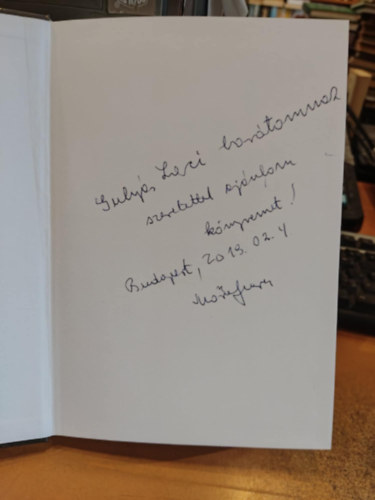 Gulyás Laci barátomnak
szeretettel ajánlom
könyvemet!
Budapest, 2019.02.4